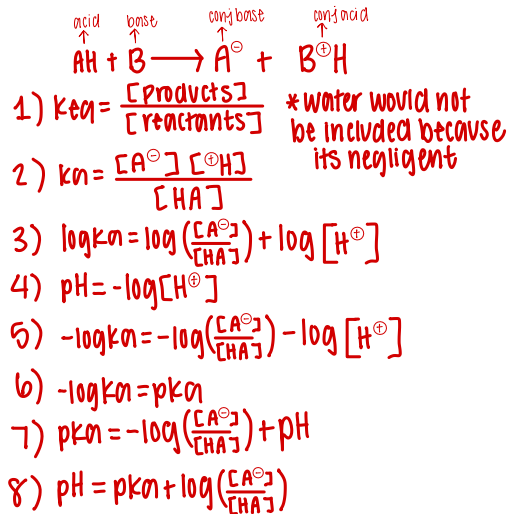 acid base conj base conj acid
↑ ↑ ↑ ↑
AH + B ⟶ A⊖ + B⊕H
1) Kea = [products] / [reactants]
* water would not
be included because
its negligent
2) Ka = [A⊖] [⊕H] / [HA]
3) logKa = log([A⊖]/[HA]) + log [H⊕]
4) pH = -log[H⊕]
5) -logKa = -log([A⊖]/[HA]) - log [H⊕]
6) -logKa = pKa
7) pKa = -log([A⊖]/[HA]) + pH
8) pH = pKa + log([A⊖]/[HA])